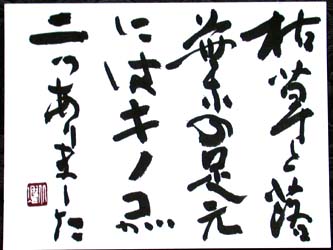 枯草と落
葉の足元
にはキノコが
二つありました